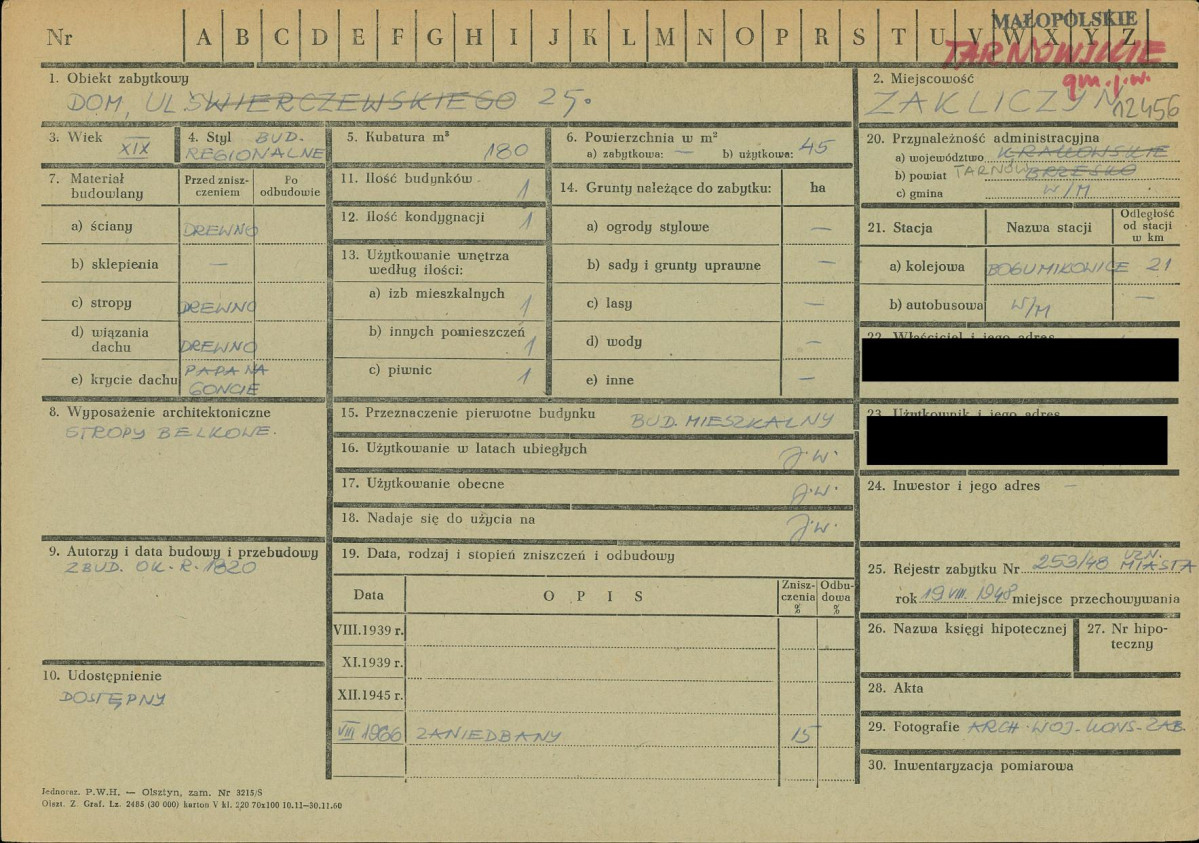 Nr A B C D E F G H I J K L M N O P R S T U V W X Y Z
MAŁOPOLSKIE
TARNOWSKIE
gm. j.w.
1. Obiekt zabytkowy
DOM, UL. ŚWIERCZEWSKIEGO 25.
2. Miejscowość
ZAKLICZYN
12456
3. Wiek
XIX
4. Styl BUD.
REGIONALNE
5. Kubatura m³
180
6. Powierzchnia w m²
a) zabytkowa: — b) użytkowa: 45
20. Przynależność administracyjna
a) województwo KRAKOWSKIE
b) powiat TARNÓW BRZESKO
c) gmina W/M
7. Materiał budowlany
Przed zniszczeniem
Po odbudowie
a) ściany DREWNO
b) sklepienia —
c) stropy DREWNO
d) wiązania dachu DREWNO
e) krycie dachu PAPA NA
GONCIE
11. Ilość budynków 1
12. Ilość kondygnacji 1
13. Użytkowanie wnętrza
według ilości:
a) izb mieszkalnych 1
b) innych pomieszczeń 1
c) piwnic 1
14. Grunty należące do zabytku: ha
a) ogrody stylowe —
b) sady i grunty uprawne —
c) lasy —
d) wody —
e) inne —
21. Stacja
Nazwa stacji
Odległość
od stacji
w km
a) kolejowa BOGUMIŁOWICE 21
b) autobusowa W/M —
22. Właściciel i jego adres
23. Użytkownik i jego adres
24. Inwestor i jego adres —
8. Wyposażenie architektoniczne
STROPY BELKOWE.
9. Autorzy i data budowy i przebudowy
ZBUD. OK. R. 1820
10. Udostępnienie
DOSTĘPNY
15. Przeznaczenie pierwotne budynku BUD. MIESZKALNY
16. Użytkowanie w latach ubiegłych J.W.
17. Użytkowanie obecne J.W.
18. Nadaje się do użycia na J.W.
19. Data, rodzaj i stopień zniszczeń i odbudowy
Data
O P I S
Zniszczenia
%
Odbudowa
%
VIII.1939 r.
XI.1939 r.
XII.1945 r.
VIII 1966 ZANIEDBANY 15
25. Rejestr zabytku Nr 253/48 UZN. MIASTA
rok 19 VIII. 1948 miejsce przechowywania
26. Nazwa księgi hipotecznej
27. Nr hipoteczny
28. Akta
29. Fotografie ARCH. WOJ. KONS. ZAB.
30. Inwentaryzacja pomiarowa
Jednoraz. P.W.H. — Olsztyn, zam. Nr 3215/S
Olszt. Z. Graf. Lz. 2485 (30 000) karton V kl. 220 70x100 10.11—30.11.60